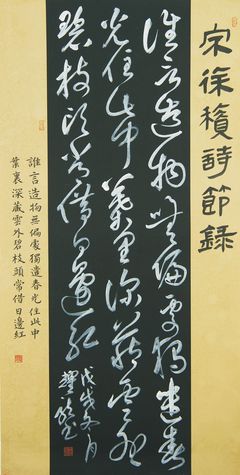 宋徐積詩節錄
誰言造物無偏處獨遣春
光住此中葉里深藏雲外
碧枝頭常借日邊紅
戊戌冬月
誰言造物無偏處獨遣春光住此中
葉裏深藏雲外碧枝頭常借日邊紅